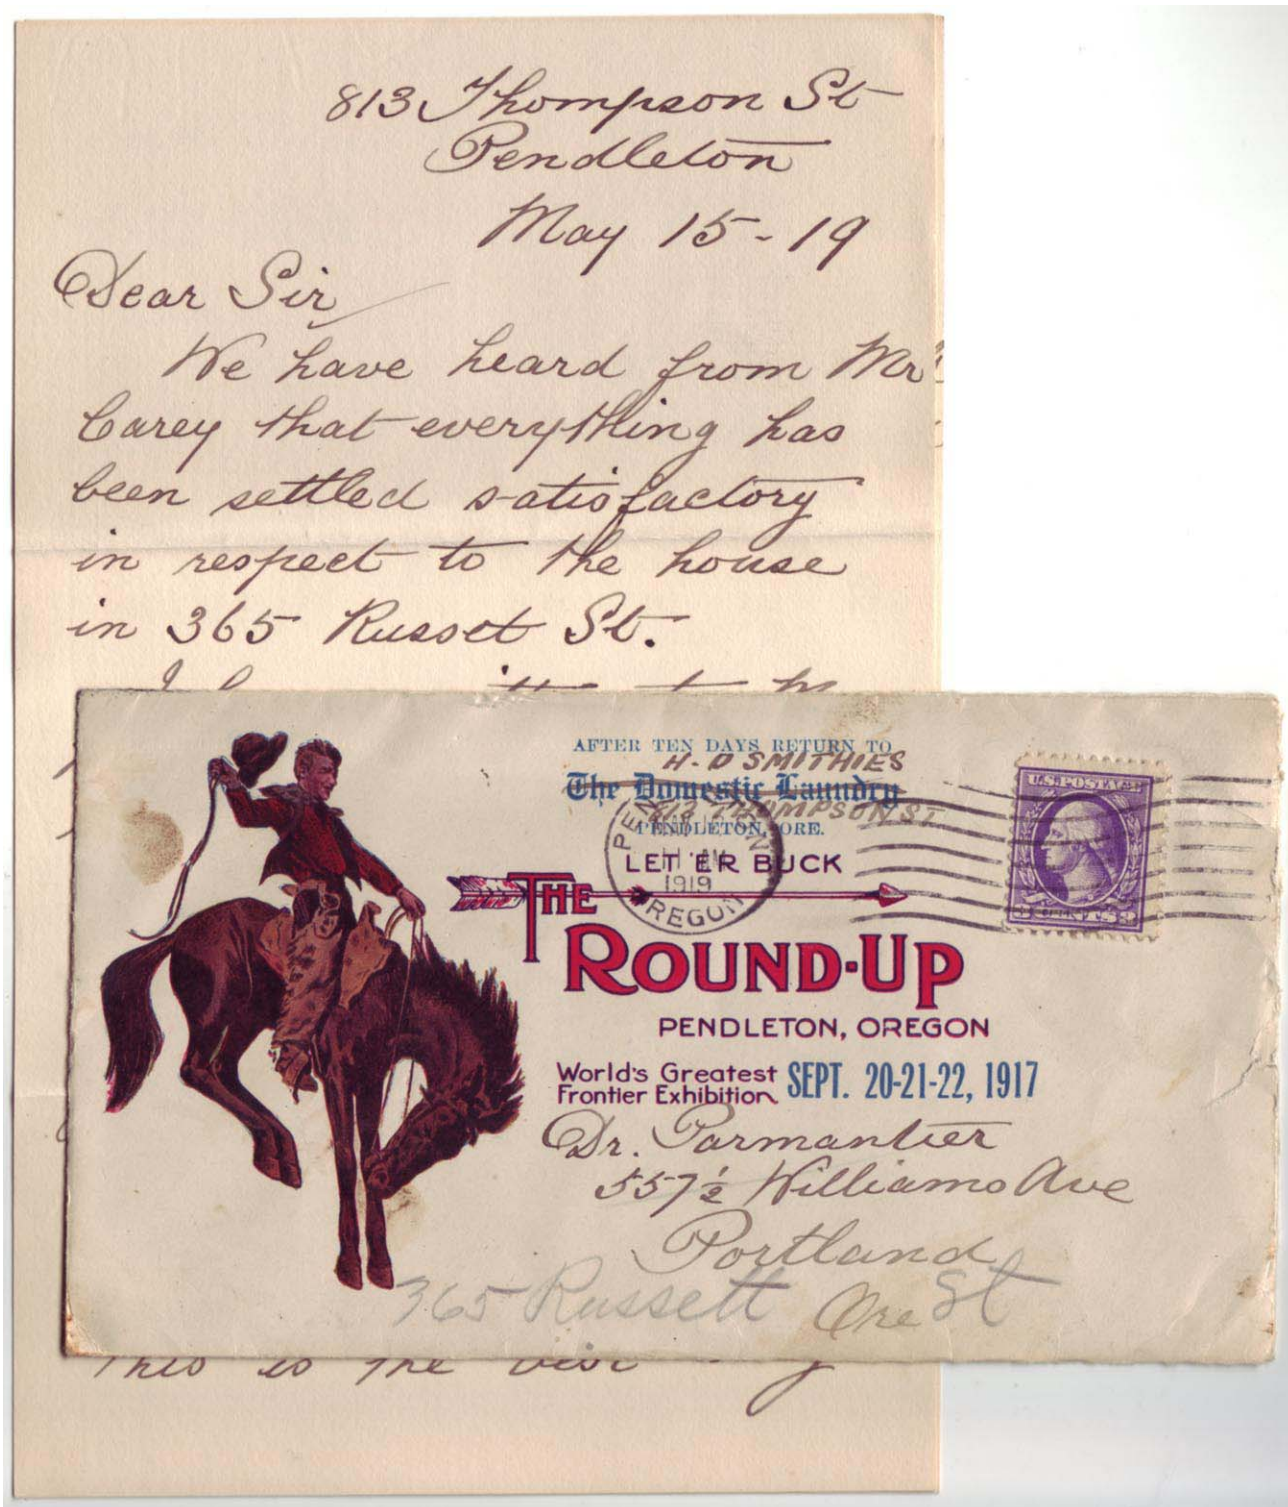 813 Thompson St
Pendleton
May 15-19
Dear Sir
We have heard from Mr
Carey that everything has
been settled satisfactory
in respect to the house
in 365 Russet St.
AFTER TEN DAYS RETURN TO
H. D SMITHIES
The Domestic Laundry
813 THOMPSON ST
PENDLETON, ORE.
LET 'ER BUCK
1919
OREGON
U.S. POSTAGE
3 CENTS 3
THE
ROUND-UP
PENDLETON, OREGON
World's Greatest
Frontier Exhibition SEPT. 20-21-22, 1917
Dr. Parmantier
557½ Williams Ave
Portland
Ore
365 Russett St
This is the